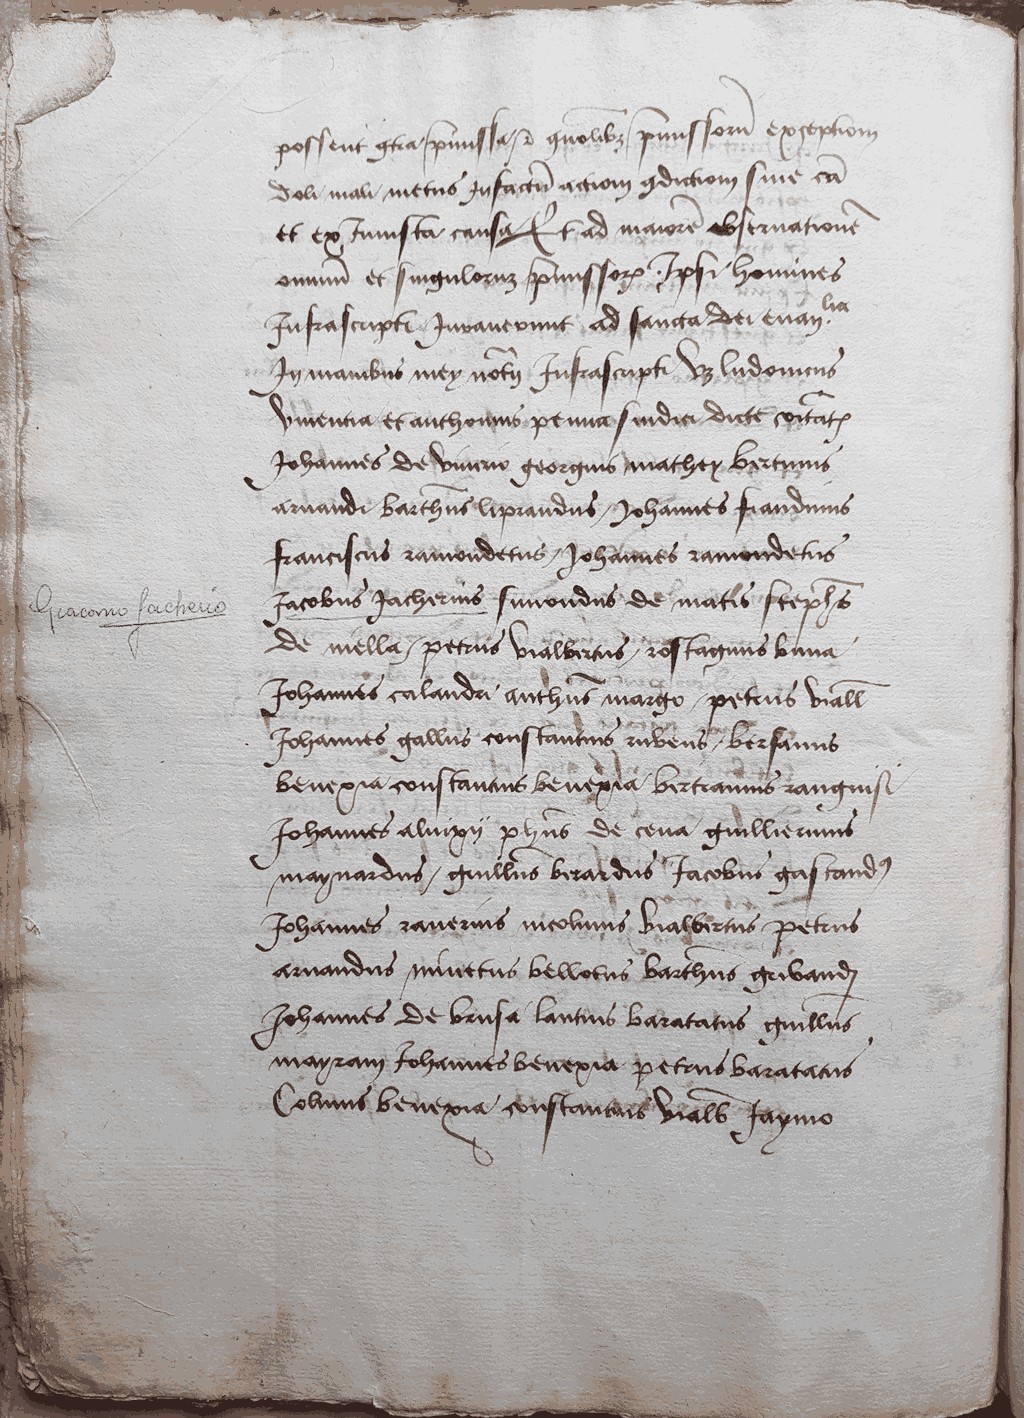 possent gtra premissa et quolibz premissorum exceptiom
doli mali metus Infactum actiom gdictiom sine cā
et ex Iniusta causa Et ad maiorē observationē
omnium et singulorum premissorum Ipsi homines
Infrascripti Iuraverunt ad sancta dei evanlia
In manibus mey notrii Infrascripti vz ludovicus
vinentia et anthonius penna sindici dicte
Johannes de vinerio georgius mathey bertinus
arnaudi barthūs liprandus Johannes
franciscus ramondetus / Johannes ramondetus
Giacomo Jacherio
Jacobus Jacherius simondus de matis stephūs
de mella / petrus vialbertus / rostagnus buna
Johannes calandri anthūs margo petrus viall
Johannes gallus constantius rubeus / bersanus
benexia constantius benexia bertranus ranguisi
Johannes aluixii phūs de ceva guillierinus
maynardus / guillūs berardus Jacobus gastaudus
Johannes raverius nicolinus vialbertus petrus
arnaudus minetus bellotus barthūs gribaud
Johannes de brusa lantius baratatus guillūs
mayram Johannes benexia petrus baratatus
Colinus benexia constantius vialb Jaymo